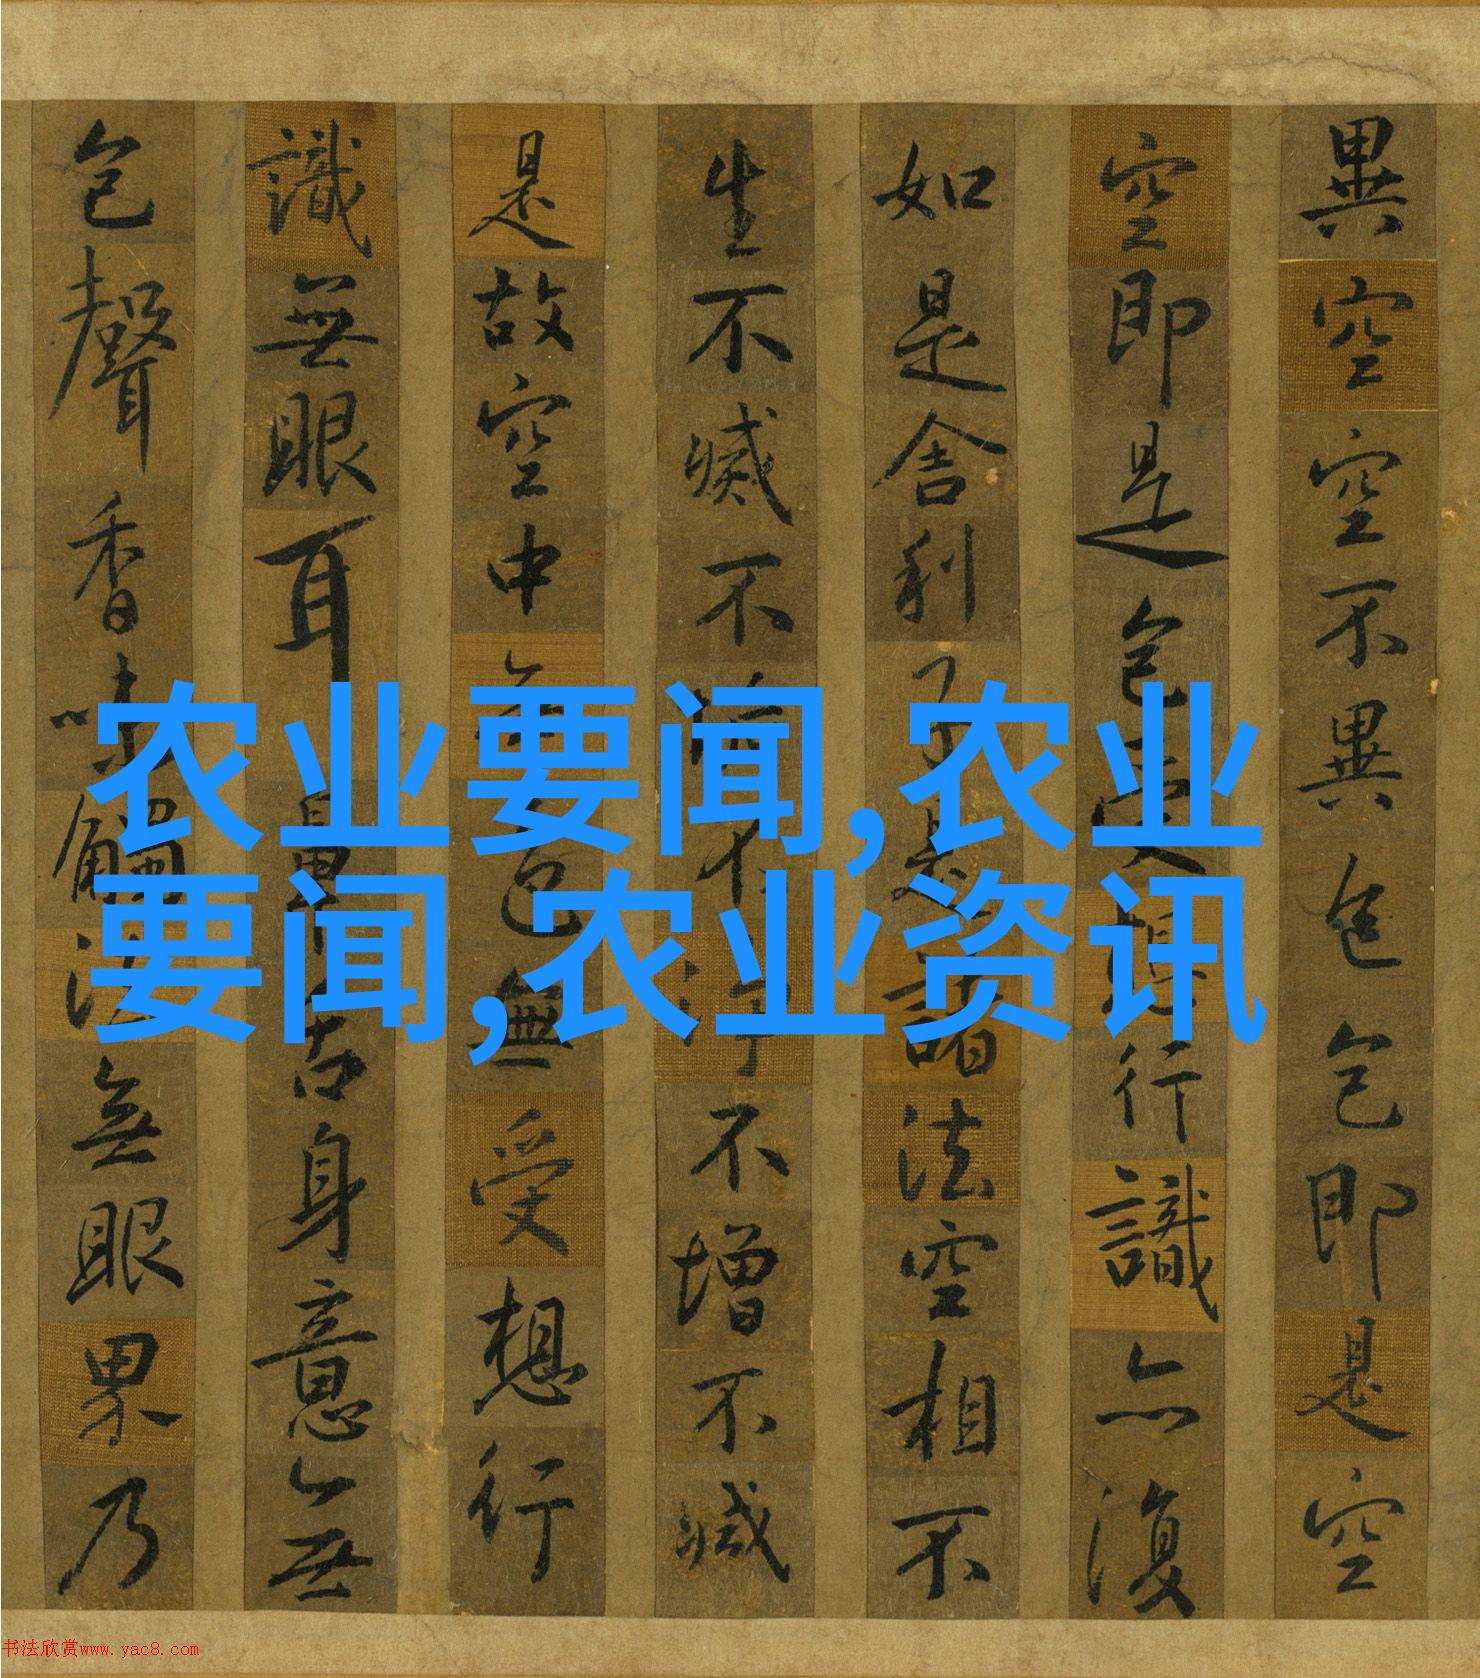 異空空不異色色即是空
空即是色受想行識亦復
如是舍利子是諸法空相不
生不滅不垢不淨不增不減
是故空中無色無受想行
識無眼耳鼻舌身意無
色聲香味觸法無眼界乃
农业要闻,农业
要闻,农业资讯
书法欣赏www.yac8.com